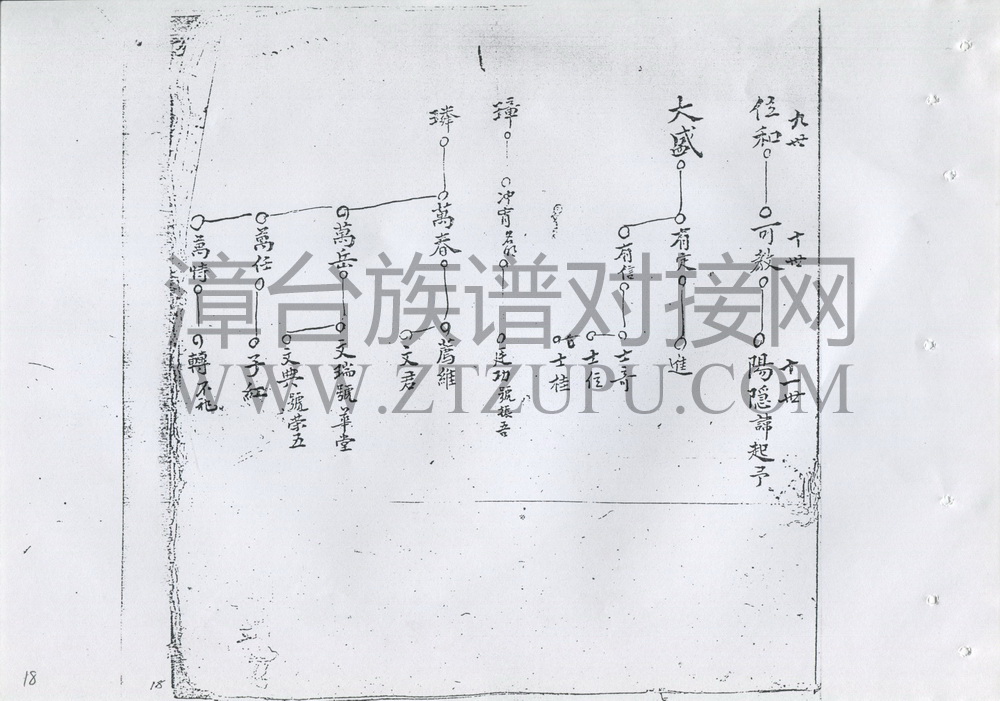 九世
十世
十一世
侹和
可教
陽隱 起予
大盛
有定
進
有信
士奇
士信
士桂
璋
冲宵
廷功號振吾
璘
萬春
萬岳
萬任
萬特
薦維
文君
文瑞號華堂
文典號榮五
子紅
轉
漳台族谱对接网
WWW.ZTZUPU.COM
18
18